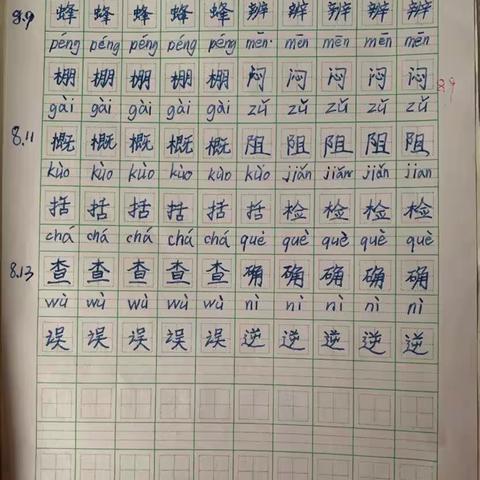 8.9 蜂 蜂 蜂 蜂 蜂 辨 辨 辨 辨 辨
péng péng péng péng péng mēn mēn mēn mēn mēn
棚 棚 棚 棚 棚 闷 闷 闷 闷 闷 8.9
gài gài gài gài gài zǔ zǔ zǔ zǔ zǔ
8.11 概 概 概 概 概 阻 阻 阻 阻 阻
kùo kùo kùo kùo kùo kùo jiǎn jiǎn jiǎn jian
括 括 括 括 括 括 检 检 检 检
chá chá chá chá chá què què què què què
8.13 查 查 查 查 查 确 确 确 确 确
wù wù wù wù wù nì nì nì nì nì
误 误 误 误 误 逆 逆 逆 逆 逆